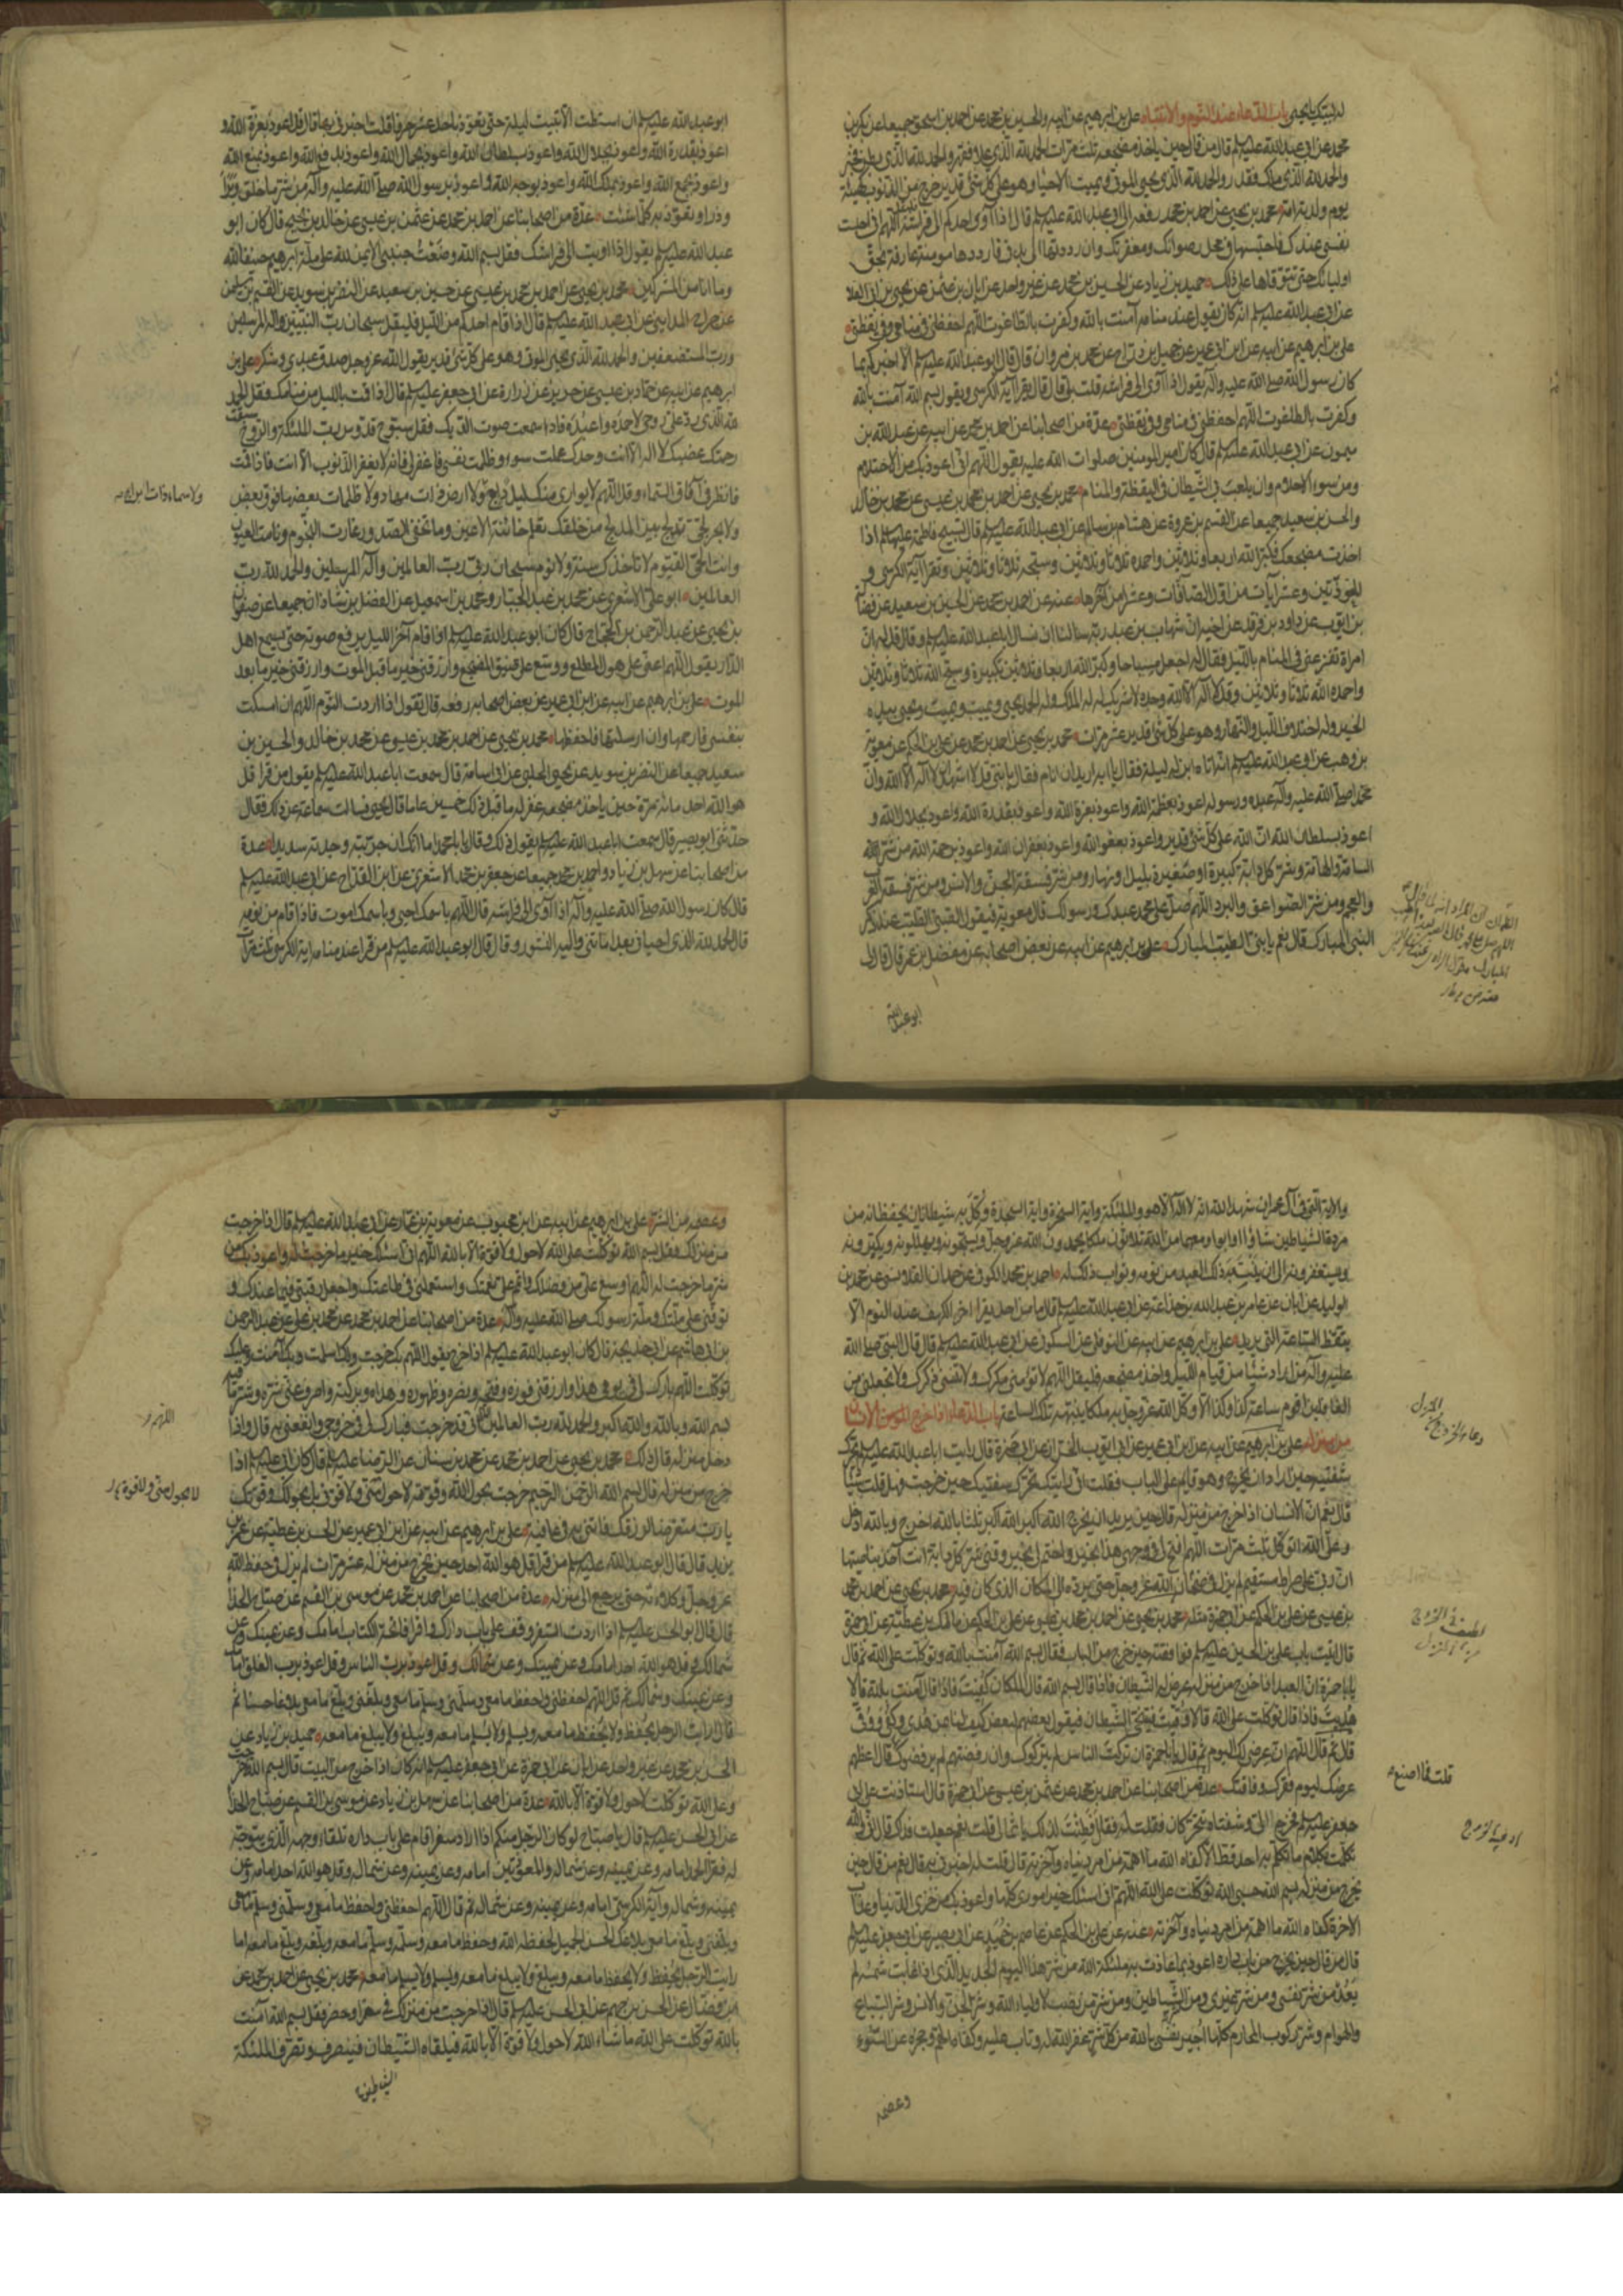 لدلبتك يايحيى باب الدعاء عند النوم والانتباه علي بن ابرهيم عن ابيه والحسين بن محمد عن احمد بن اسحق جميعا عن بكر بن
محمد عن ابي عبدالله عليه السلم قال من قال حين ياخذ مضجعه ثلث مرات الحمد لله الذي علا فقهر والحمد لله الذي بطن فخبر
والحمد لله الذي ملك فقدر والحمد لله الذي يحيى الموتى ويميت الاحياء وهو على كل شئ قدير خرج من الذنوب كهيئة
يوم ولدته امه محمد بن يحيى عن احمد بن محمد رفعه الى ابي عبدالله عليه السلم قال اذا أوى احدكم الى فراشه فليقل اللهم اني احتبست
نفسي عندك فاحتبسها في محل رضوانك ومغفرتك وان رددتها الى بدني فارددها مومنة عارفة بحق
اوليائك حتى تتوفاها على ذلك حميد بن زياد عن الحسين بن محمد عن غير واحد عن ابان بن عثمن عن يحيى بن ابي العلا
عن ابي عبدالله عليه السلم انه كان يقول عند منامه آمنت بالله وكفرت بالطاغوت اللهم احفظني في منامي وفي يقظتي
علي بن ابرهيم عن ابيه عن ابن ابي عمير عن جميل بن دراج عن محمد بن مروان قال قال ابو عبدالله عليه السلم الا اخبركم بما
كان رسول الله صلى الله عليه وآله يقول اذا أوى الى فراشه قلت بلى قال كان يقرأ آية الكرسي ويقول بسم الله آمنت بالله
وكفرت بالطاغوت اللهم احفظني في منامي وفي يقظتي عدة من اصحابنا عن احمد بن محمد عن ابيه عن عبد الله بن
ميمون عن ابي عبدالله عليه السلم قال كان امير المومنين صلوات الله عليه يقول اللهم اني اعوذ بك من الاحتلام
ومن سوء الاحلام وان يلعب بي الشيطان في اليقظة والمنام محمد بن يحيى عن احمد بن محمد بن عيسى عن محمد بن خالد
والحسين بن سعيد جميعا عن القسم بن عروة عن هشام بن سالم عن ابي عبدالله عليه السلم قال تسبيح فاطمة عليها السلم اذا
اخذت مضجعك فكبر الله اربعا وثلاثين واحمده ثلاثا وثلاثين وسبحه ثلاثا وثلاثين وتقرأ آية الكرسي و
المعوذتين وعشر آيات من اول الصافات وعشرا من آخرها عنه عن احمد بن محمد عن الحسين بن سعيد عن فضالة
بن ايوب عن داود بن فرقد عن اخيه ان شهاب بن عبد ربه سالنا ان نسال ابا عبدالله عليه السلم وقال قل له ان
امراة تفزعني في المنام بالليل فقال قل له اجعل مسباحا وكبر الله اربعا وثلاثين تكبيرة وسبح الله ثلاثا وثلاثين
واحمد الله ثلاثا وثلاثين وقل لا اله الا الله وحده لا شريك له له الملك وله الحمد يحيي ويميت ويميت ويحيى بيده
الخير وله اختلاف الليل والنهار وهو على كل شئ قدير عشر مرات محمد بن يحيى عن احمد بن محمد عن علي بن الحكم عن معوية
بن وهب عن ابي عبدالله عليه السلم انه اتاه ابن له ليلة فقال له يا ابه اريد ان انام فقال يا بني قل اشهد ان لا اله الا الله وان
محمدا صلى الله عليه وآله عبده ورسوله اعوذ بعظمة الله واعوذ بعزة الله واعوذ بقدرة الله واعوذ بجلال الله و
اعوذ بسلطان الله ان الله على كل شئ قدير واعوذ بعفو الله واعوذ بغفران الله واعوذ برحمة الله من شر
السامة والهامة ومن شر كل دابة كبيرة او صغيرة بليل او نهار ومن شر فسقة الجن والانس ومن شر فسقة العرب
والعجم ومن شر الصواعق والبرد اللهم صل على محمد عبدك ورسولك قال معوية فيقول الصبي الطيب عند ذكر
النبي المبارك قال نعم يا بني الطيب المبارك علي بن ابرهيم عن ابيه عن بعض اصحابه عن مفضل بن عمر قال قال لي
ابو عبدالله
ابو عبدالله عليه السلم ان استطعت الا تبيت ليلة حتى تعوذ باحد عشر حرفا قلت اخبرني بها قال قل اعوذ بعزة الله و
اعوذ بقدرة الله واعوذ بجلال الله واعوذ بسلطان الله واعوذ بجمال الله واعوذ بدفع الله واعوذ بمنع الله
واعوذ بجمع الله واعوذ بملك الله واعوذ بوجه الله واعوذ برسول الله صلى الله عليه وآله من شر ما خلق وبرأ
وذرا وتعوذ به كلما شئت عدة من اصحابنا عن احمد بن محمد عن عثمن بن عيسى عن خالد بن نجيح قال كان ابو
عبدالله عليه السلم يقول اذا اويت الى فراشك فقل بسم الله وضعت جنبي الايمن لله على ملة ابرهيم حنيفا لله
وما انا من المشركين محمد بن يحيى عن احمد بن محمد بن عيسى عن حسين بن سعيد عن النضر بن سويد عن القسم بن سليمن
عن جراح المدايني عن ابي عبدالله عليه السلم قال اذا قام احدكم من الليل فليقل سبحان رب النبيين واله المرسلين
ورب المستضعفين والحمد لله الذي يحيي الموتى وهو على كل شئ قدير يقول الله عز وجل صدق عبدي وشكر علي بن
ابرهيم عن ابيه عن حماد بن عيسى عن حريز عن زرارة عن ابي جعفر عليه السلم قال اذا قمت بالليل من منامك فقل الحمد
لله الذي رد علي روحي لاحمده واعبده فاذا سمعت صوت الديك فقل سبوح قدوس رب الملئكة والروح سبقت
رحمتك غضبك لا اله الا انت وحدك عملت سوءا وظلمت نفسي فاغفر لي فانه لا يغفر الذنوب الا انت فاذا قمت
فانظر في آفاق السماء وقل اللهم لا يواري منك ليل داج ولا ارض ذات مهاد ولا ظلمات بعضها فوق بعض
ولا سماء ذات ابراج
ولا بحر لجي تدلج بين المدلج من خلقك تعلم خائنة الاعين وما تخفي الصدور غارت النجوم ونامت العيون
وانت الحي القيوم لا تاخذك سنة ولا نوم سبحان ربي رب العالمين وآله المرسلين والحمد لله رب
العالمين ابو علي الاشعري عن محمد بن عبد الجبار ومحمد بن اسمعيل عن الفضل بن شاذان جميعا عن صفوان
بن يحيى عن عبد الرحمن بن الحجاج قال كان ابو عبدالله عليه السلم اذا قام آخر الليل يرفع صوته حتى يسمع اهل
الدار يقول اللهم اعني على هول المطلع ووسع علي ضيق المضجع وارزقني خير ما قبل الموت وارزقني خير ما بعد
الموت علي بن ابرهيم عن ابيه عن ابن ابي عمير عن بعض اصحابه رفعه قال تقول اذا اردت النوم اللهم ان امسكت
بنفسي فارحمها وان ارسلتها فاحفظها محمد بن يحيى عن احمد بن محمد بن عيسى عن محمد بن خالد والحسين بن
سعيد جميعا عن النضر بن سويد عن يحيى الحلبي عن ابي اسامة قال سمعت ابا عبدالله عليه السلم يقول من قرا قل
هو الله احد مائة مرة حين ياخذ مضجعه غفر له ما قبل ذلك خمسين عاما قال يحيى فسالت سماعة عن ذلك فقال
حدثني ابو بصير قال سمعت ابا عبدالله عليه السلم يقول ذلك وقال يا با محمد اما انك ان جربته وجدته سديدا عدة
من اصحابنا عن سهل بن زياد واحمد بن محمد جميعا عن جعفر بن محمد الاشعري عن ابن القداح عن ابي عبدالله عليه السلم
قال كان رسول الله صلى الله عليه وآله اذا أوى الى فراشه قال اللهم باسمك احيى وباسمك اموت فاذا قام من نومه
قال الحمد لله الذي احياني بعد اماتني واليه النشور وقال قال ابو عبدالله عليه السلم من قرا عند منامه اية الكرسي ثلث مرات
والاية التي في آل عمران شهد الله انه لا اله الا هو والملئكة واية السخرة واية السجدة وكل به شيطانان يحفظانه من
مردة الشياطين شاؤا او ابوا ومعهما من الله ثلاثون ملكا يحمدون الله عز وجل ويسبحونه ويهللونه ويكبرونه
ويستغفرونه الى ان ينتبه ذلك العبد من نومه وثواب ذلك له احمد بن محمد الكوفي عن حمدان القلانسي عن محمد بن
الوليد عن ابان عن عامر بن عبدالله بن جذاعة عن ابي عبدالله عليه السلم قال ما من احد يقرا اخر الكهف عند النوم الا
يتيقظ الساعة التي يريد علي بن ابرهيم عن ابيه عن النوفلي عن السكوني عن ابي عبدالله عليه السلم قال قال النبي صلى الله
عليه وآله من اراد شيئا من قيام الليل واخذ مضجعه فليقل اللهم لا تؤمني مكرك ولا تنسني ذكرك ولا تجعلني من
الغافلين اقوم ساعة كذا وكذا الا وكل الله عز وجل به ملكا ينبهه تلك الساعة باب الدعاء اذا خرج الانسان
من منزله علي بن ابرهيم عن ابيه عن ابن ابي عمير عن ابي ايوب الخزاز عن ابي حمزة قال رايت ابا عبدالله عليه السلم يحرك
شفتيه حين اراد ان يخرج وهو قائم على الباب فقلت اني رايتك تحرك شفتيك حين خرجت فهل قلت شيئا
قال نعم ان الانسان اذا خرج من منزله قال حين يريد ان يخرج الله اكبر الله اكبر ثلثا بالله اخرج وبالله ادخل
وعلى الله اتوكل ثلث مرات اللهم افتح لي في وجهي هذا بخير واختم لي بخير وقني شر كل دابة انت آخذ بناصيتها
ان ربي على صراط مستقيم لم يزل في ضمان الله عز وجل حتى يرده الى المكان الذي كان فيه محمد بن يحيى عن احمد بن محمد
بن عيسى عن علي بن الحكم عن ابي حمزة مثله محمد بن يحيى عن احمد بن محمد بن عيسى عن علي بن الحكم عن مالك بن عطية عن ابي حمزة
قال اتيت باب علي بن الحسين عليه السلم فوافقته حين خرج من الباب فقال بسم الله آمنت بالله وتوكلت على الله ثم قال
يا با حمزة ان العبد اذا خرج من منزله عرض له الشيطان فاذا قال بسم الله قال الملكان كفيت فاذا قال آمنت بالله قالا
هديت فاذا قال توكلت على الله قالا وقيت فيتنحى الشيطان فيقول بعضهم لبعض كيف لنا بمن هدي وكفي ووقي
قال ثم قال اللهم ان عرضي لك اليوم ثم قال يا با حمزة ان تركت الناس لم يتركوك وان رفضتهم لم يرفضوك قال اعطهم
قلت فما اصنع
عرضك ليوم فقرك وفاقتك عدة من اصحابنا عن احمد بن محمد عن عثمن بن عيسى عن ابي حمزة قال استاذنت على ابي
جعفر عليه السلم فخرج الي وشفتاه تتحركان فقلت له فقال افطنت لذلك يا ثمالي قلت نعم جعلت فداك قال اني والله
تكلمت بكلام ما تكلم به احد قط الا كفاه الله ما اهمه من امر دنياه وآخرته قال قلت له اخبرني به قال نعم من قال حين
يخرج من منزله بسم الله حسبي الله توكلت على الله اللهم اني اسئلك خير اموري كلها واعوذ بك من خزي الدنيا وعذاب
الاخرة كفاه الله ما اهمه من امر دنياه وآخرته عنه عن علي بن الحكم عن عاصم بن حميد عن ابي بصير عن ابي جعفر عليه السلم
قال من قال حين يخرج من باب داره اعوذ بما عاذت به ملئكة الله من شر هذا اليوم الجديد الذي اذا غابت شمسه لم
يعد من شر نفسي ومن شر غيري ومن شر الشياطين ومن شر من نصب لاولياء الله ومن شر الجن والانس وشر السباع
والهوام وشر ركوب المحارم كلها اجير نفسي بالله من كل شر غفر الله له وتاب عليه وكفاه الهم وحجزه عن السوء
وعصمه
وعصمه من الشر علي بن ابرهيم عن ابيه عن ابن محبوب عن معوية بن عمار عن ابي عبدالله عليه السلم قال اذا خرجت
من منزلك فقل بسم الله توكلت على الله لا حول ولا قوة الا بالله اللهم اني اسئلك خير ما خرجت له واعوذ بك من
شر ما خرجت له اللهم اوسع علي من فضلك واتمم علي نعمتك واستعملني في طاعتك واجعل رغبتي فيما عندك و
توفني على ملتك وملة رسولك صلى الله عليه وآله عدة من اصحابنا عن احمد بن محمد عن محمد بن علي عن عبد الرحمن
بن ابي هاشم عن ابي خديجة قال كان ابو عبدالله عليه السلم اذا خرج يقول اللهم بك خرجت ولك اسلمت وبك آمنت وعليك
توكلت اللهم بارك لي في يومي هذا وارزقني فوزه وفتحه ونصره وطهوره وهداه وبركته واصرف عني شره وشر ما فيه
بسم الله وبالله والله اكبر والحمد لله رب العالمين اللهم اني قد خرجت فبارك لي في خروجي وانفعني به قال واذا
دخل منزله قال ذلك محمد بن يحيى عن احمد بن محمد عن محمد بن سنان عن الرضا عليه السلم قال كان ابي عليه السلم اذا
خرج من منزله قال بسم الله الرحمن الرحيم خرجت بحول الله وقوته لا حول مني ولا قوة بل بحولك وقوتك
يا رب متعرضا لرزقك فاتني به في عافية علي بن ابرهيم عن ابيه عن ابن ابي عمير عن الحسن بن عطية عن عمر بن
يزيد قال قال ابو عبدالله عليه السلم من قرا قل هو الله احد حين يخرج من منزله عشر مرات لم يزل في حفظ الله
عز وجل وكلاءته حتى يرجع الى منزله عدة من اصحابنا عن احمد بن محمد عن موسى بن القسم عن صباح الحذاء
قال قال ابو الحسن عليه السلم اذا اردت السفر فقف على باب دارك واقرا فاتحة الكتاب امامك وعن يمينك وعن
شمالك وقل هو الله احد امامك وعن يمينك وعن شمالك وقل اعوذ برب الناس وقل اعوذ برب الفلق امامك
وعن يمينك وشمالك ثم قل اللهم احفظني واحفظ ما معي وسلمني وسلم ما معي وبلغني وبلغ ما معي بلاغا حسنا ثم
قال اما رايت الرجل يحفظ ولا يحفظ ما معه ويسلم ولا يسلم ما معه ويبلغ ولا يبلغ ما معه حميد بن زياد عن
الحسن بن محمد عن غير واحد عن ابان عن ابي حمزة عن ابي جعفر عليه السلم انه كان اذا خرج من البيت قال بسم الله خرجت
وعلى الله توكلت لا حول ولا قوة الا بالله عدة من اصحابنا عن سهل بن زياد عن موسى بن القسم عن صباح الحذاء
عن ابي الحسن عليه السلم قال يا صباح لو كان الرجل منكم اذا اراد سفرا قام على باب داره تلقاء وجهه الذي يتوجه
له فقرا الحمد امامه وعن يمينه وعن شماله والمعوذتين امامه وعن يمينه وعن شماله وقل هو الله احد امامه وعن
يمينه وشماله وآية الكرسي امامه وعن يمينه وعن شماله ثم قال اللهم احفظني واحفظ ما معي وسلمني وسلم ما معي
وبلغني وبلغ ما معي ببلاغك الحسن الجميل لحفظه الله وحفظ ما معه وسلمه وسلم ما معه وبلغه وبلغ ما معه اما
رايت الرجل يحفظ ولا يحفظ ما معه ويبلغ ولا يبلغ ما معه ويسلم ولا يسلم ما معه محمد بن يحيى عن احمد بن محمد عن
ابن فضال عن الحسن بن جهم عن ابي الحسن عليه السلم قال اذا خرجت من منزلك في سفر او حضر فقل بسم الله آمنت
بالله توكلت على الله ما شاء الله لا حول ولا قوة الا بالله فتلقاه الشيطان فينصرف وتضرب الملئكة
الشياطين